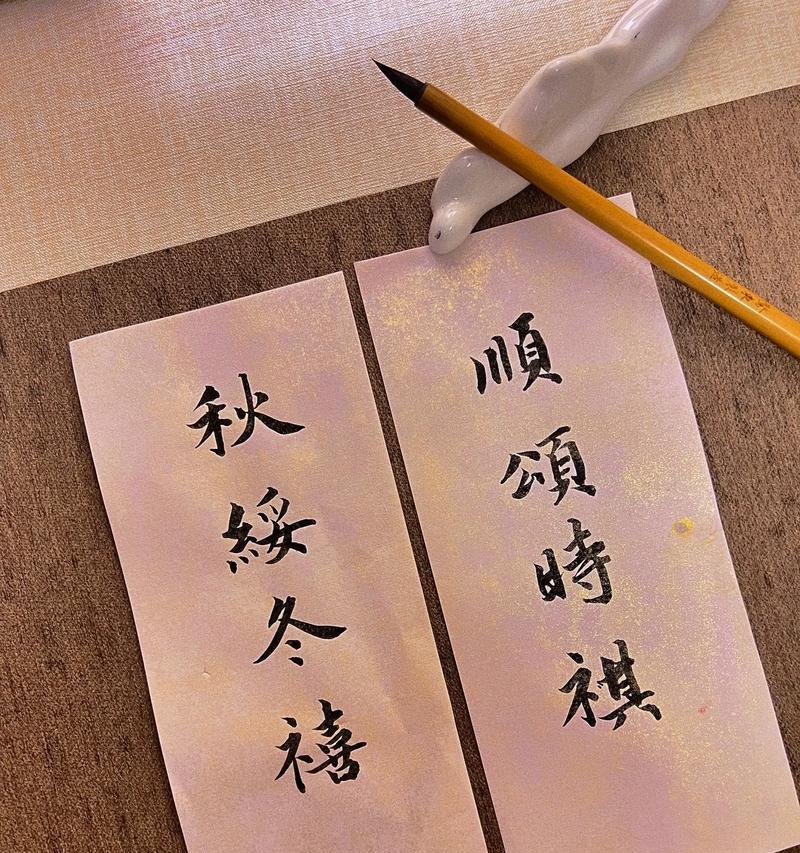 順頌時祺
秋綏冬禧